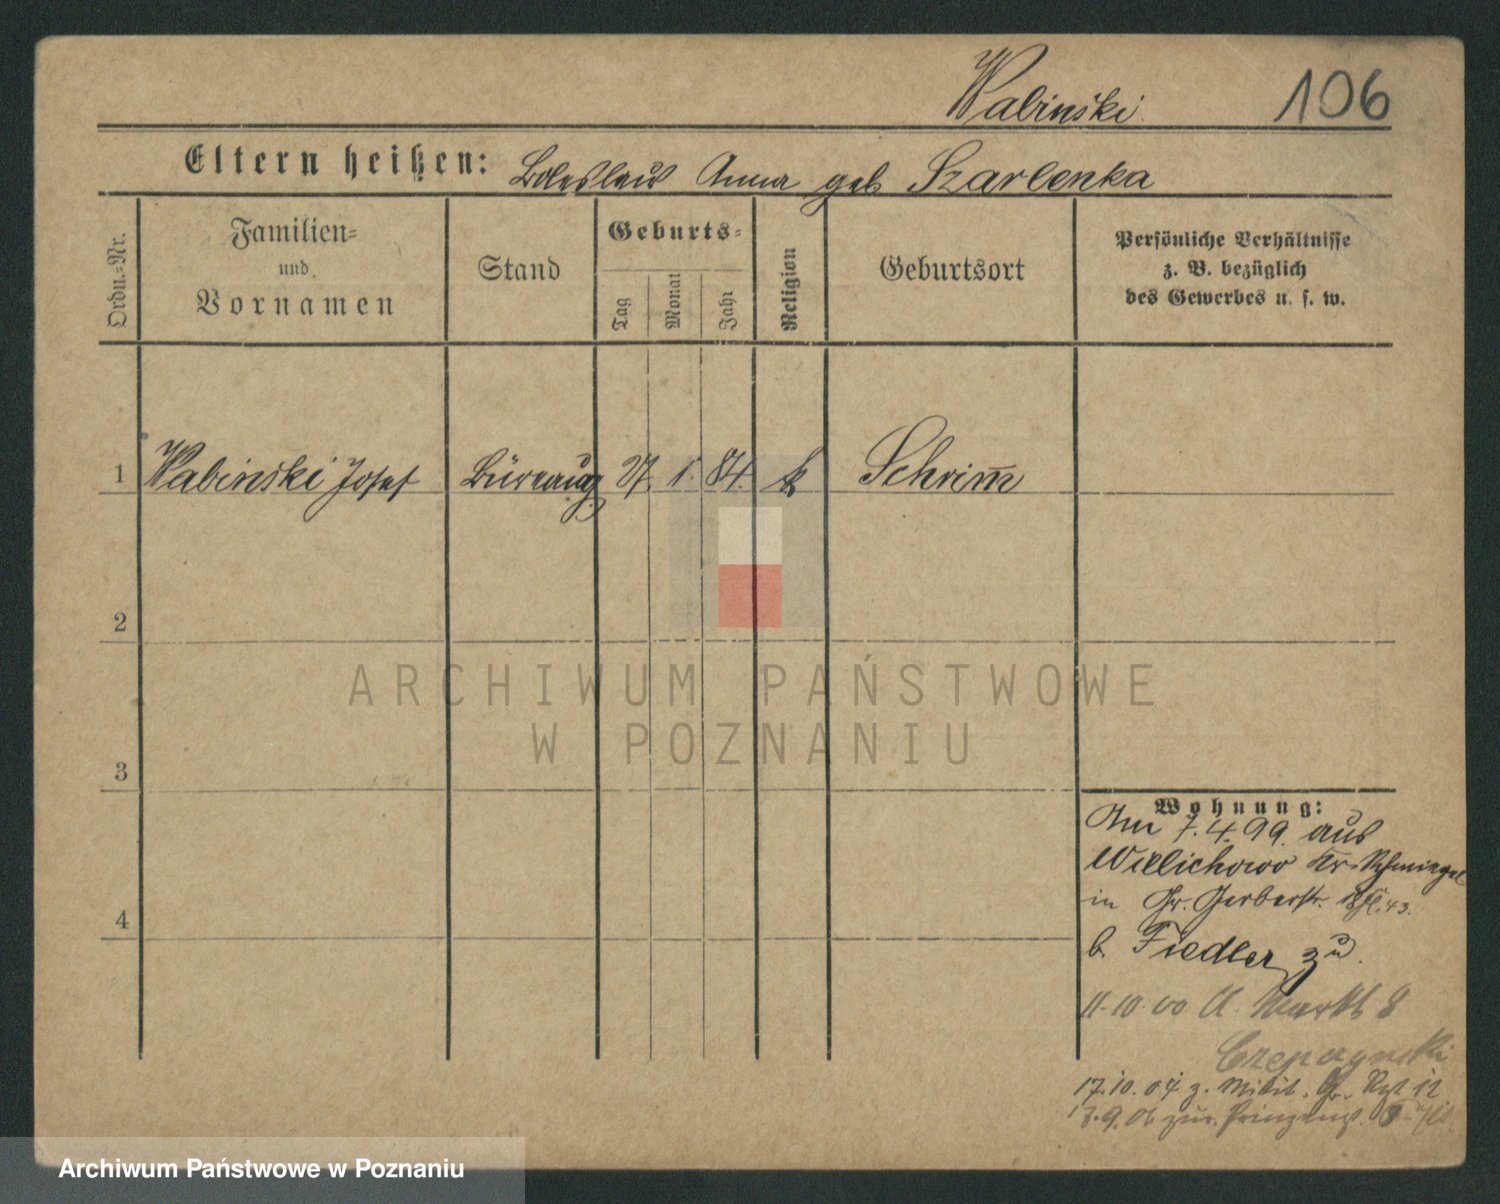 Wabinski 106
Eltern heißen: Boleslaus Anna geb Szarlenka
Ordn.-Nr.
Familien-
und
Vornamen
Stand
Geburts-
Tag
Monat
Jahr
Religion
Geburtsort
Persönliche Verhältnisse
z. B. bezüglich
des Gewerbes u. s. w.
1 Wabinski Josef 27. 1. 84. k Schrim̄
2
ARCHIWUM PAŃSTWOWE
W POZNANIU
3
Wohnung:
Am 7.4.99. aus
Wielichowo Kr. Schmiegel
in Gr. Gerberstr. 43.
4
b. Fiedler zu.
11.10.00 A. Markt 8
17.10.04 z. Milit. Gr. Rgt 12
3.9.06 zur.
Archiwum Państwowe w Poznaniu